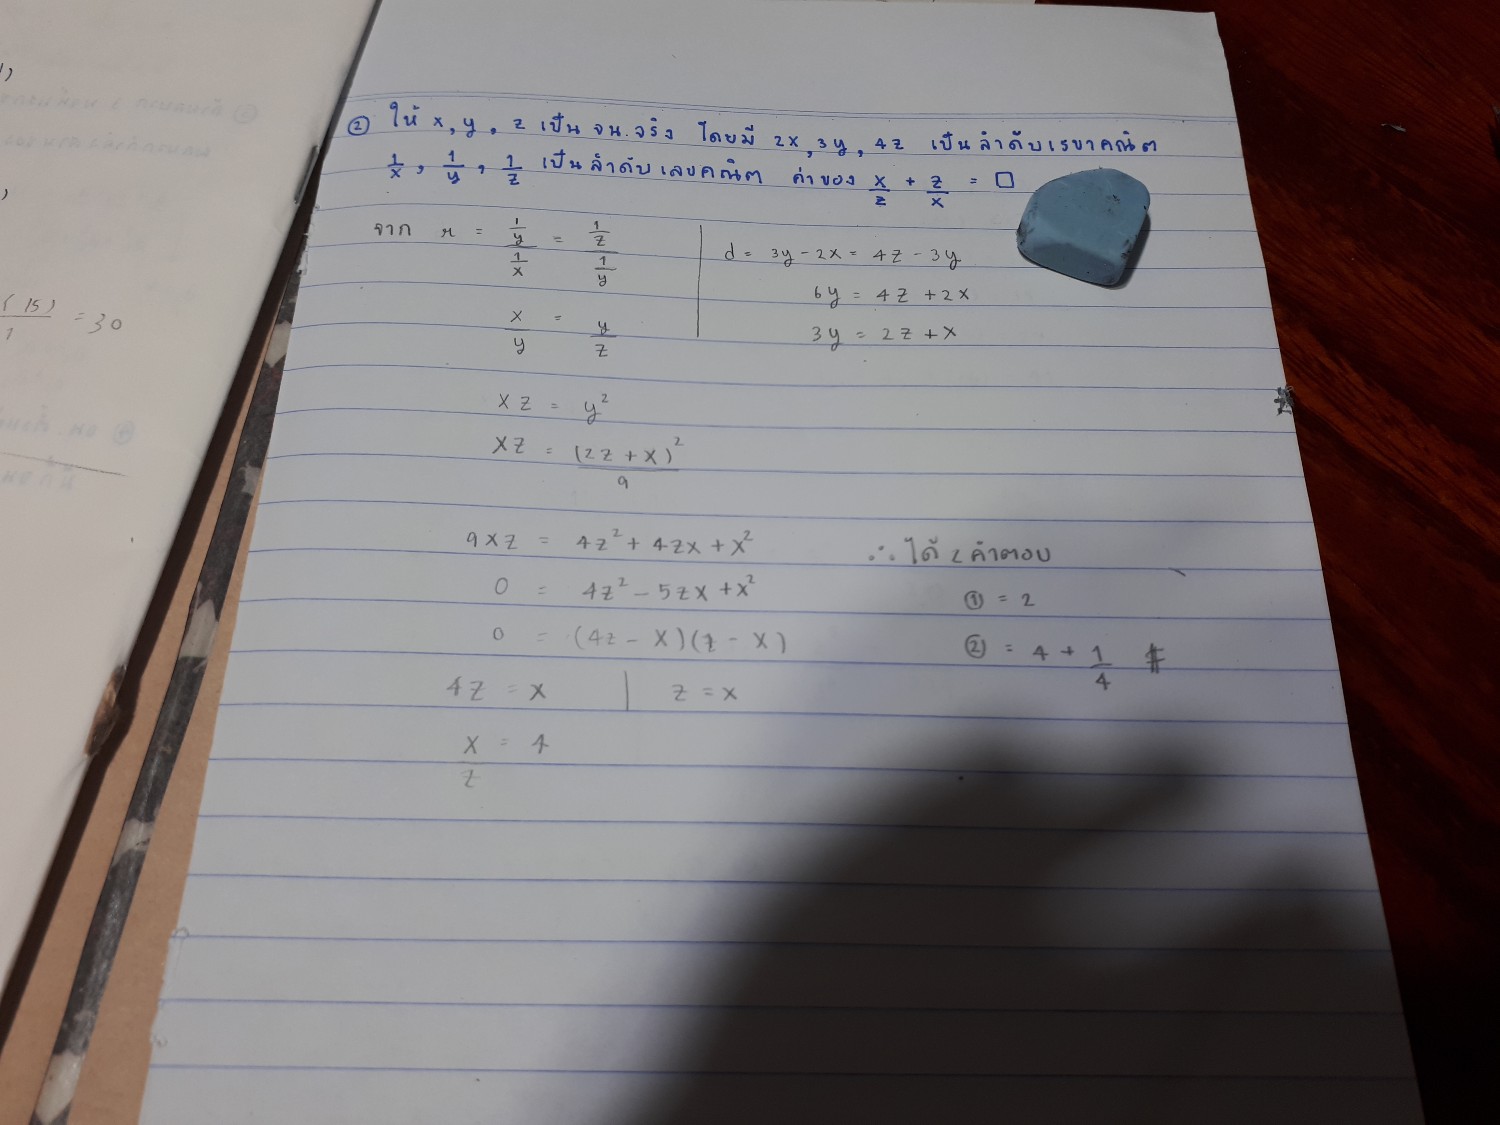 ② ให้ x, y, z เป็น จน.จริง โดยมี 2x, 3y, 4z เป็นลำดับเรขาคณิต
1/x, 1/y, 1/z เป็นลำดับเลขคณิต ค่าของ x/z + z/x = □
จาก r = (1/y)/(1/x) = (1/z)/(1/y)
x/y = y/z
d = 3y - 2x = 4z - 3y
6y = 4z + 2x
3y = 2z + x
xz = y²
xz = (2z + x)²/9
9xz = 4z² + 4zx + x²
0 = 4z² - 5zx + x²
0 = (4z - x)(z - x)
4z = x | z = x
x/z = 4
∴ ได้ 2 คำตอบ
① = 2
② = 4 + 1/4 #
(15)
= 30